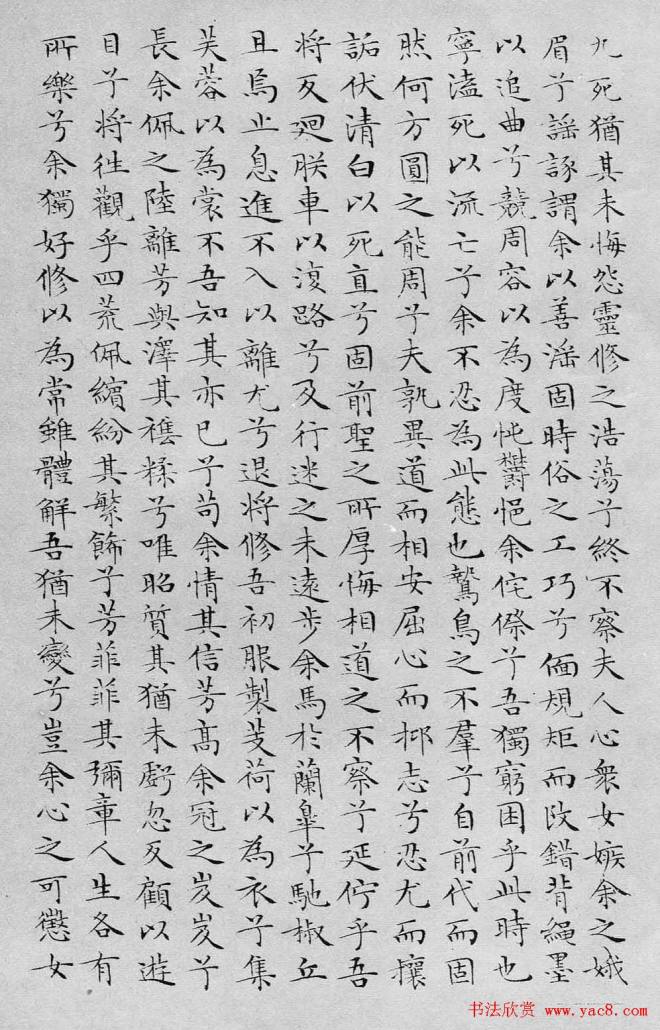 九死猶其未悔怨靈修之浩蕩兮終不察夫人心衆女嫉余之娥
眉兮謡諑謂余以善滛固時俗之工巧兮偭規矩而改錯背繩墨
以追曲兮競周容以為度忳鬱悒余侘傺兮吾獨窮困乎此時也
寧溘死以流亡兮余不忍為此態也鷙鳥之不羣兮自前代而固
然何方圓之能周兮夫孰異道而相安屈心而抑志兮忍尤而攘
詬伏清白以死直兮固前聖之所厚悔相道之不察兮延佇乎吾
將反迴朕車以復路兮及行迷之未遠步余馬於蘭皋兮馳椒丘
且焉止息進不入以離尤兮退將修吾初服製芰荷以為衣兮集
芙蓉以為裳不吾知其亦已兮苟余情其信芳高余冠之岌岌兮
長余佩之陸離芳與澤其襍糅兮唯昭質其猶未虧忽反顧以遊
目兮將徃觀乎四荒佩繽紛其繁飾兮芳菲菲其彌章人生各有
所樂兮余獨好修以為常雖體解吾猶未變兮豈余心之可懲女
书法欣赏 www.yac8.com